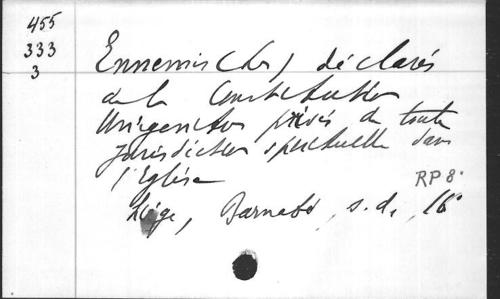 455
333
3
Ennemis (Les) déclarés
de la Constitution
Unigenitus privés de toute
jurisdiction spirituelle dans
l'Eglise
RP 8°
Liège, Barnabé, s.d., 16°